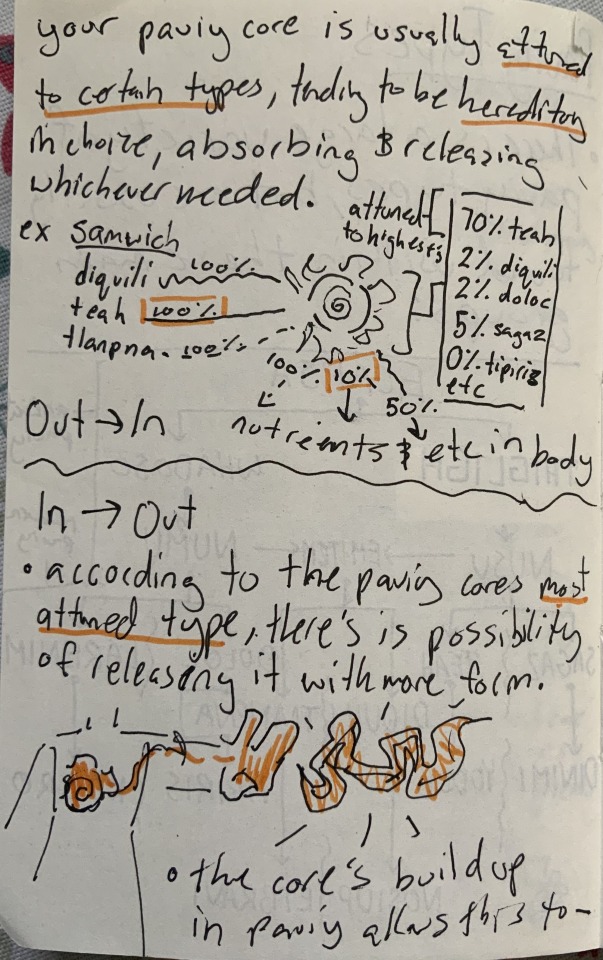 your paviy core is usually attuned
to certain types, tending to be hereditory
in choize, absorbing & releazing
whichever needed.
attuned
to highest's
70% teah
2% diquili
2% doloc
5% sagaz
0% tipiriz
etc
ex samwich
diquili 100%
teah 100%
tlanpna. 100%
100% 10% 50%
Out → In
nutrients & etc in body
In → Out
• according to the paviy cores most
attuned type, there's is possibility
of releasing it with more form.
• the core's buildup
in paviy allows this to -